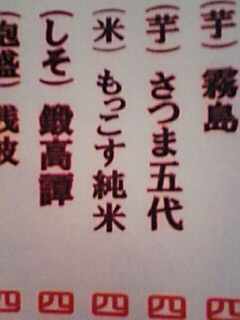 (芋) 霧島
(芋) さつま五代
(米) もっこす純米
(しそ) 鍛高譚
(泡盛) 残波
四 四 四 四 四